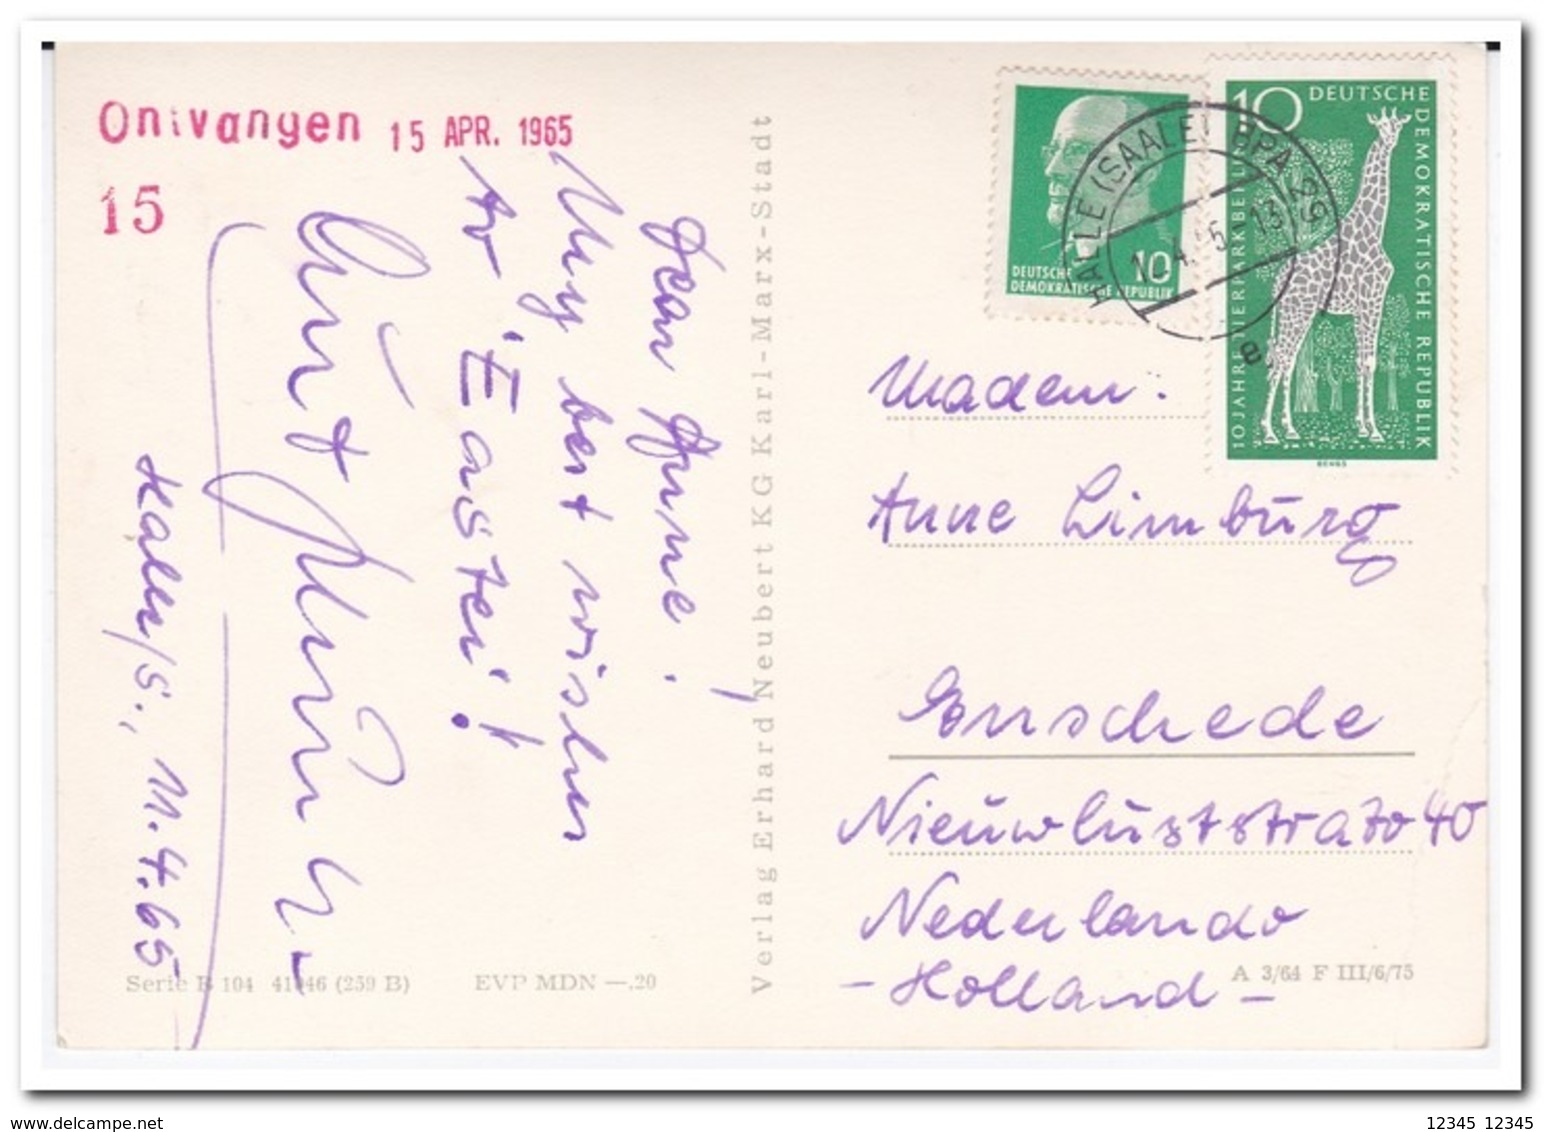 Ontvangen 15 APR. 1965
15
Dear Anne!
Very best wishes
to 'Easter'!
Kurt
Halle/S., 11.4.65
Serie B 104 41046 (259 B) EVP MDN —.20
Verlag Erhard Neubert KG Karl-Marx-Stadt
10
DEUTSCHE
DEMOKRATISCHE REPUBLIK
HALLE (SAALE) BPA
10 DEUTSCHE
DEMOKRATISCHE REPUBLIK
10 JAHRE TIERPARK BERLIN
Madem:
Anne Limburg
Enschede
Nieuwluststrato 40
Nederlando
- Holland -
A 3/64 F III/6/75
12345 12345